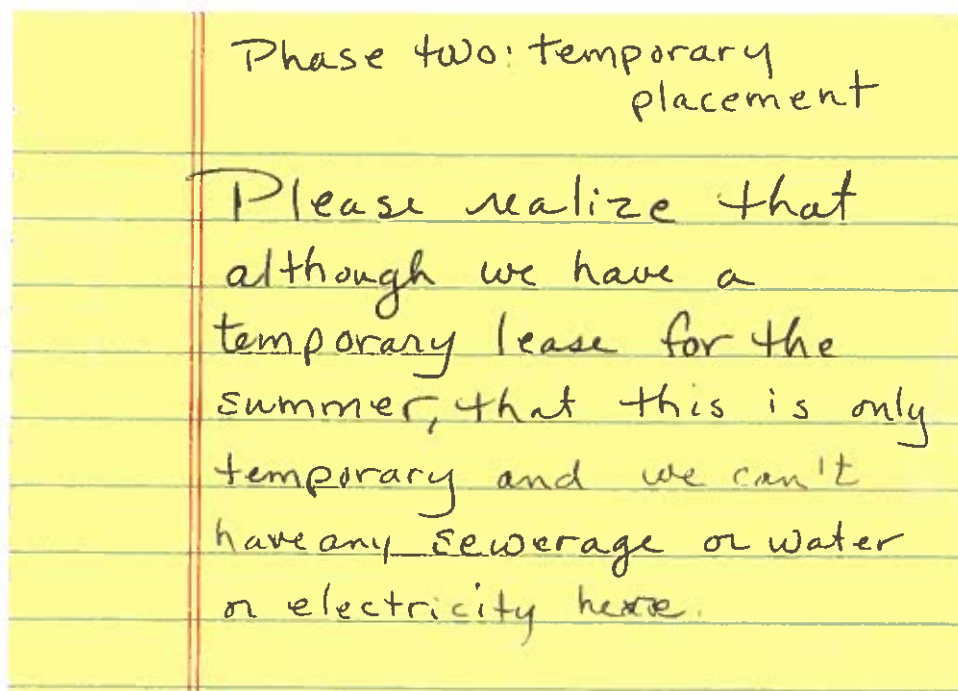 Phase two: temporary
placement
Please realize that
although we have a
temporary lease for the
summer, that this is only
temporary and we can't
have any sewerage or water
or electricity here.